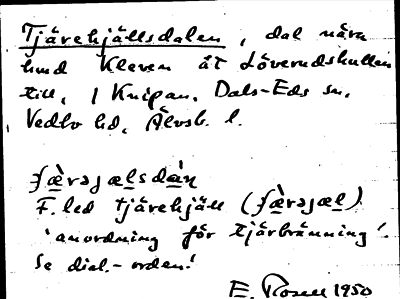 Tjärehjällsdalen, dal nära
hmd Kleven åt Löverudskullen
till, i Knipan. Dals-Eds sn,
Vedbo hd, Älvsb. l.
F. led tjärehjäll
'anordning för tjärbränning'.
Se dial.-orden!
E. Rosell 1950